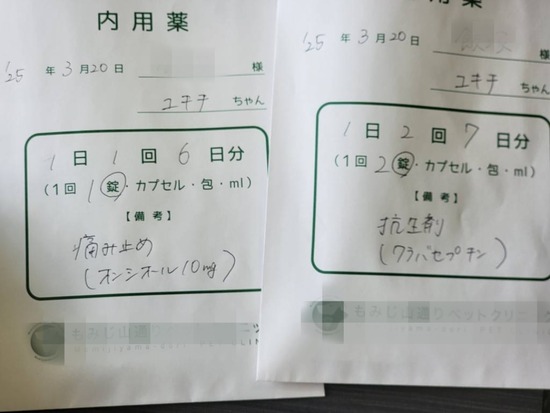 内用薬
'25年3月20日 様
ユキチ ちゃん
1日1回6日分
(1回1錠・カプセル・包・ml)
【備考】
痛み止め
(オンシオール10mg)
もみじ山通り
用薬
'25年3月20日 様
ユキチ ちゃん
1日2回7日分
(1回2錠・カプセル・包・ml)
【備考】
抗生剤
(クラバセプチン)
もみじ山通りペットクリニック